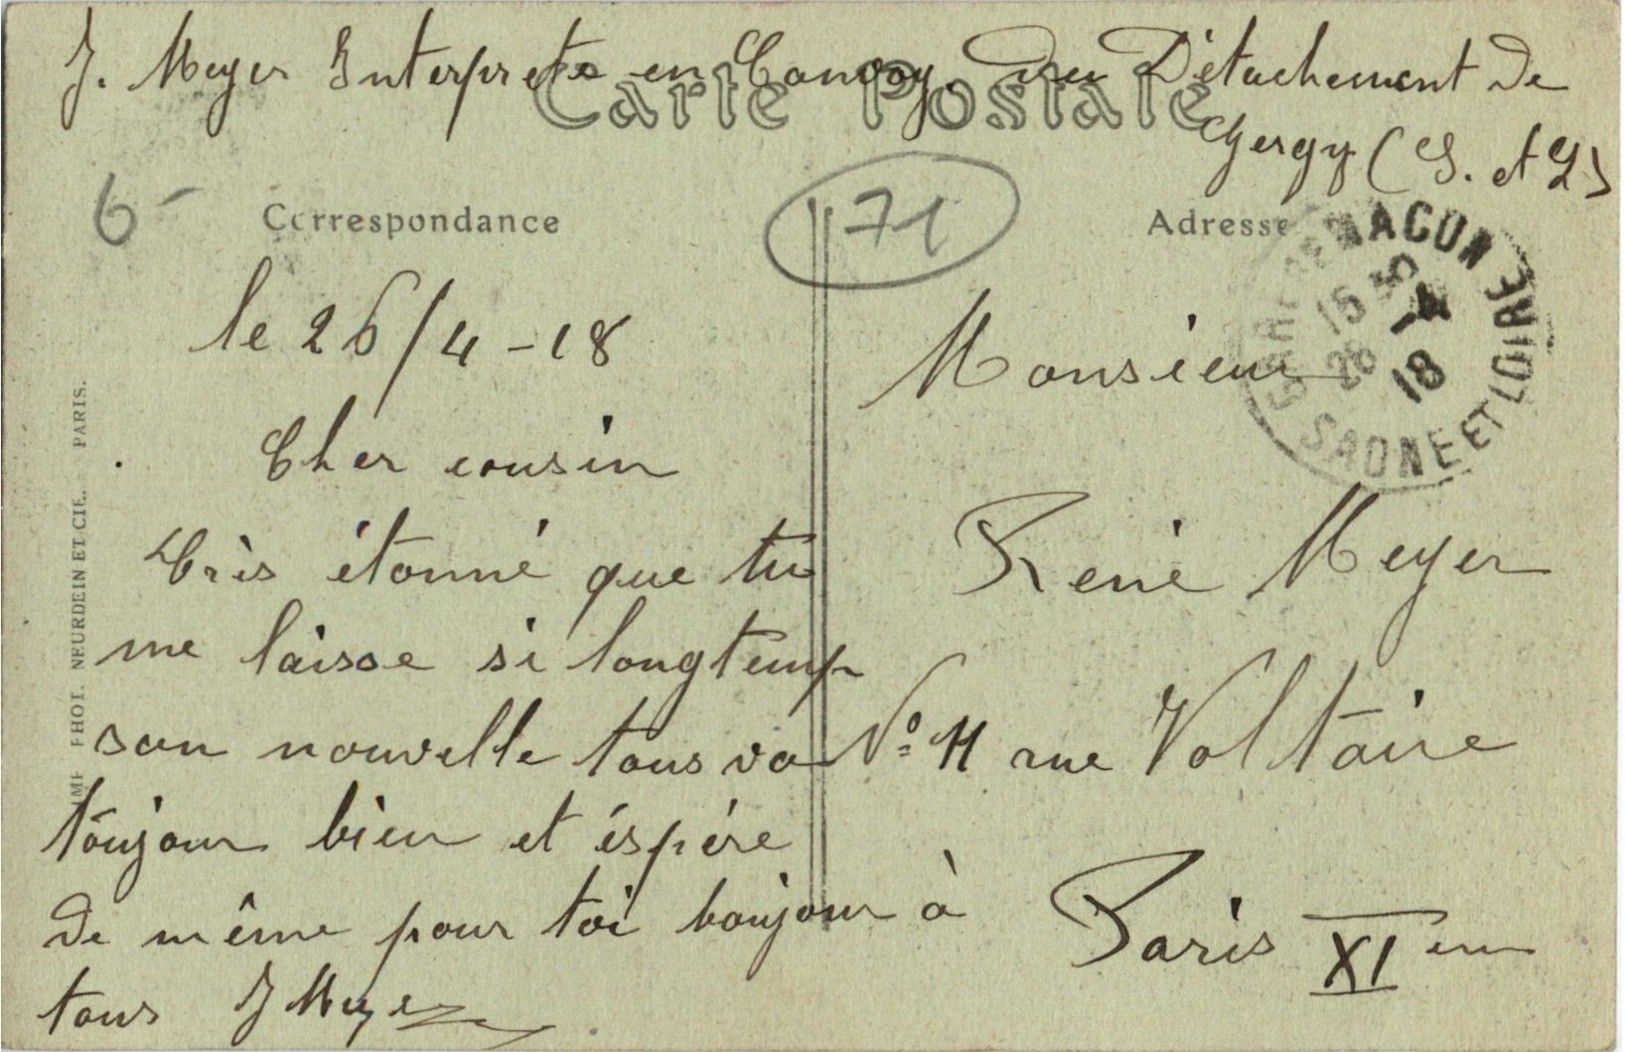 J. Meyer Interprete en Convoy du Détachement de
Gergy (S. et L)
Carte Postale
6-
71
Correspondance
Adresse
GARE DE MACON
15 30
26 -4
18
SAONE ET LOIRE
le 26/4-18
Cher cousin
Très étonné que tu
me laisse si longtemp
san nouvelle tous va
toujour bien et éspére
de même pour toi boujour à
tous J Meyer
Monsieur
René Meyer
No 11 rue Voltaire
Paris XI em
IMP. PHOT. NEURDEIN ET CIE. PARIS.